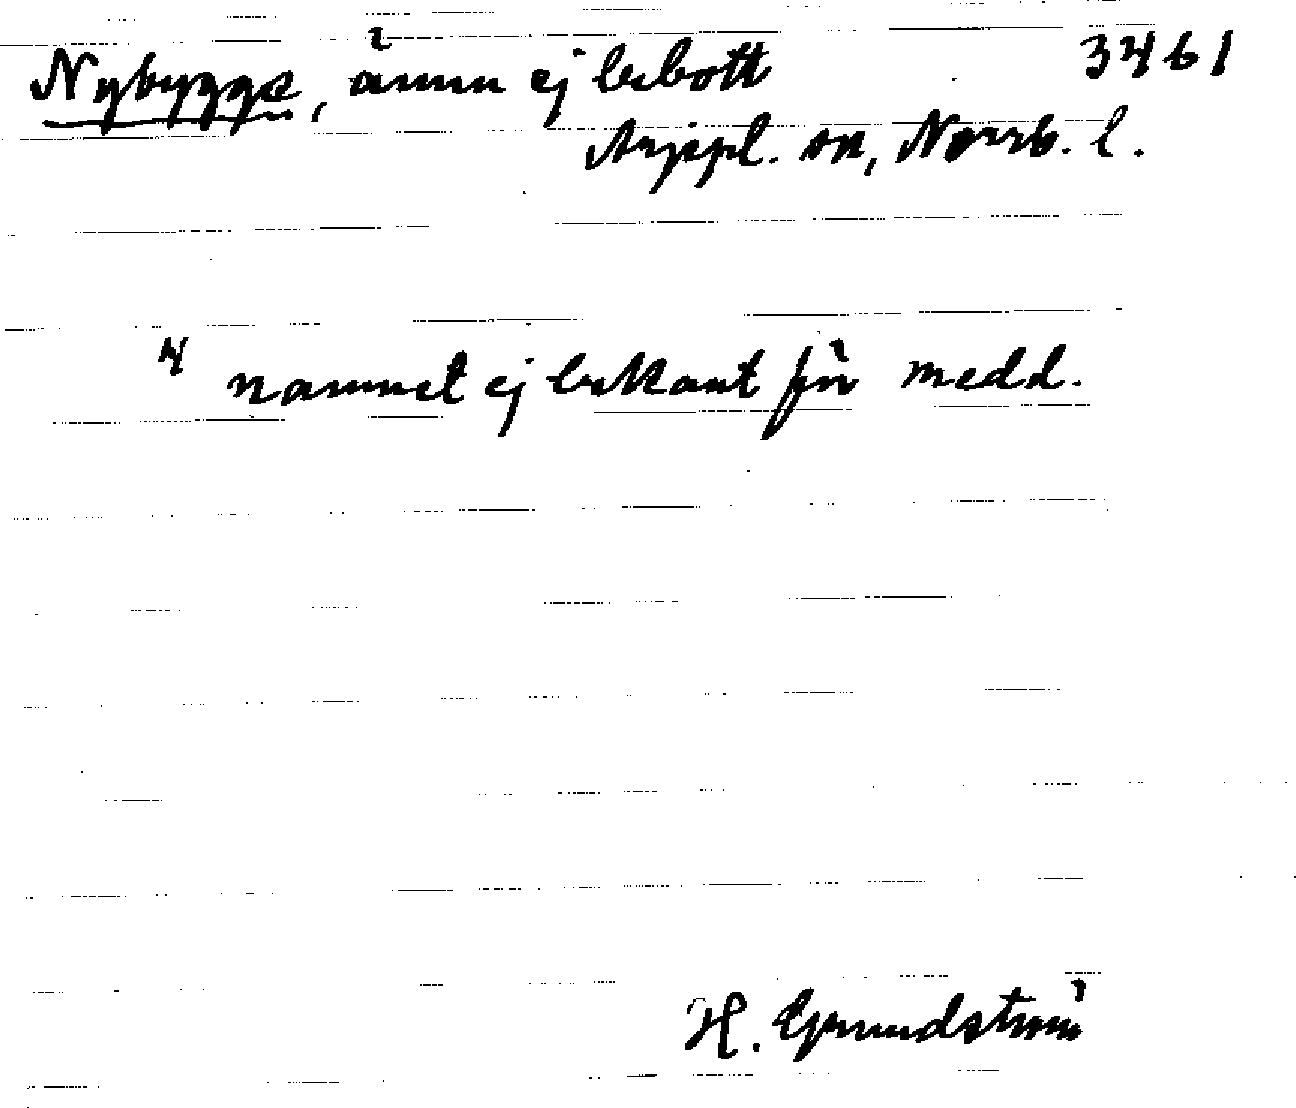 Nybygge, ännu ej bebott 3461
Arjepl. sn, Norrb. l.
namnet ej bekant för medd.
H. Grundström